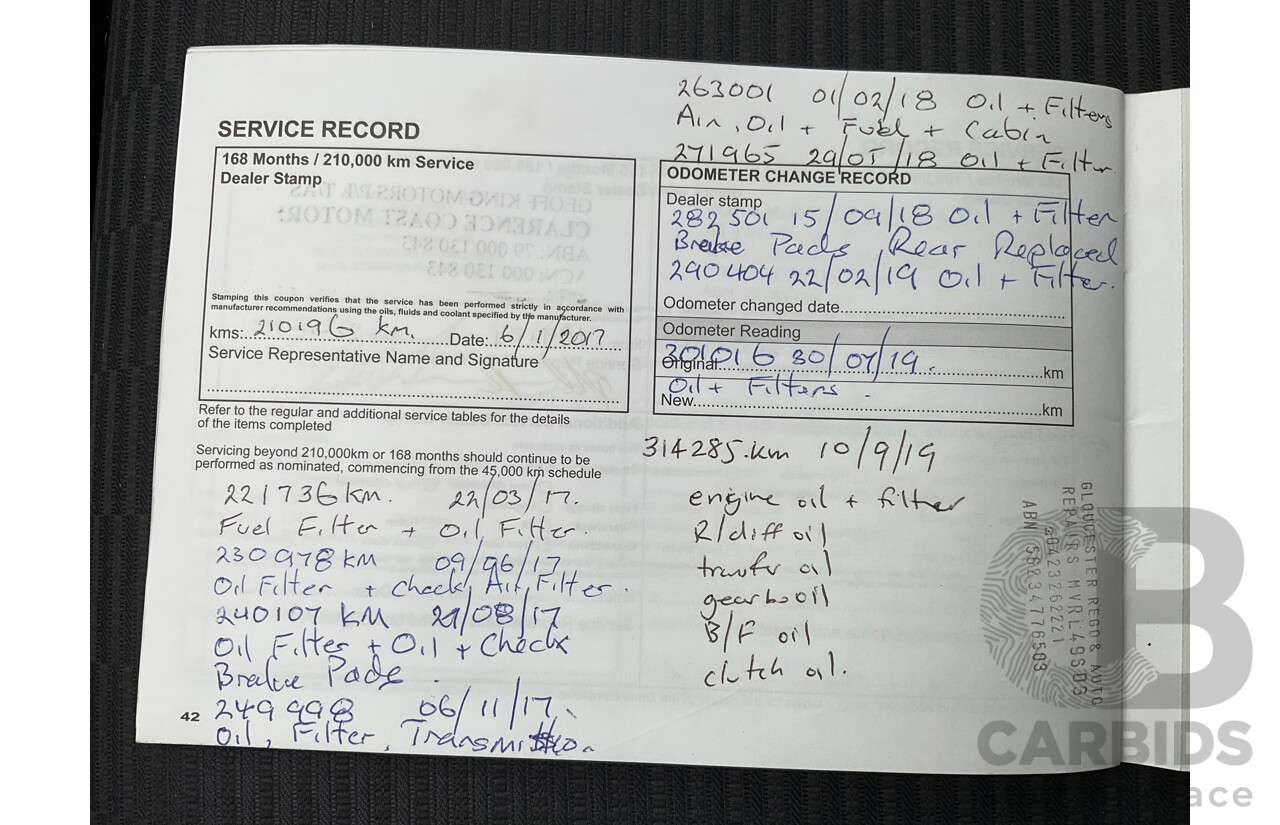 SERVICE RECORD
168 Months / 210,000 km Service
Dealer Stamp
Stamping this coupon verifies that the service has been performed strictly in accordance with
manufacturer recommendations using the oils, fluids and coolant specified by the manufacturer.
kms:..210196 km.......Date:..6/1/2017
Service Representative Name and Signature
Refer to the regular and additional service tables for the details
of the items completed
Servicing beyond 210,000km or 168 months should continue to be
performed as nominated, commencing from the 45,000 km schedule
221736km. 22/03/17.
Fuel Filter + Oil Filter.
230978km 09/06/17
Oil Filter + Check Air Filter.
240107 KM /08/17
Oil Filter + Oil + Check
Brake Pads.
249998 06/11/17.
Oil, Filter, Transmission
42
263001 01/02/18 Oil + Filters
Air, Oil + Fuel + Cabin
271965 29/05/18 Oil + Filter.
ODOMETER CHANGE RECORD
Dealer stamp
282501 15/09/18 Oil + Filter
Brake Pads Rear Replaced
290404 22/02/19 Oil + Filter.
Odometer changed date
Odometer Reading
301016 30/07/19.
Original km
Oil + Filters.
New km
314285.km 10/9/19
engine oil + filter
R/diff oil
transfr oil
gearbooil
B/F oil
clutch oil.
GLOUCESTER REGO & AUTO
REPAIRS MVRL49503
0423262221
ABN 56234776503
GEOFF KING MOTORS P/L T/AS
CLARENCE COAST MOTORS
ABN: 79 000 130 843
ACN: 000 130 843
CB
CARBIDS
ace